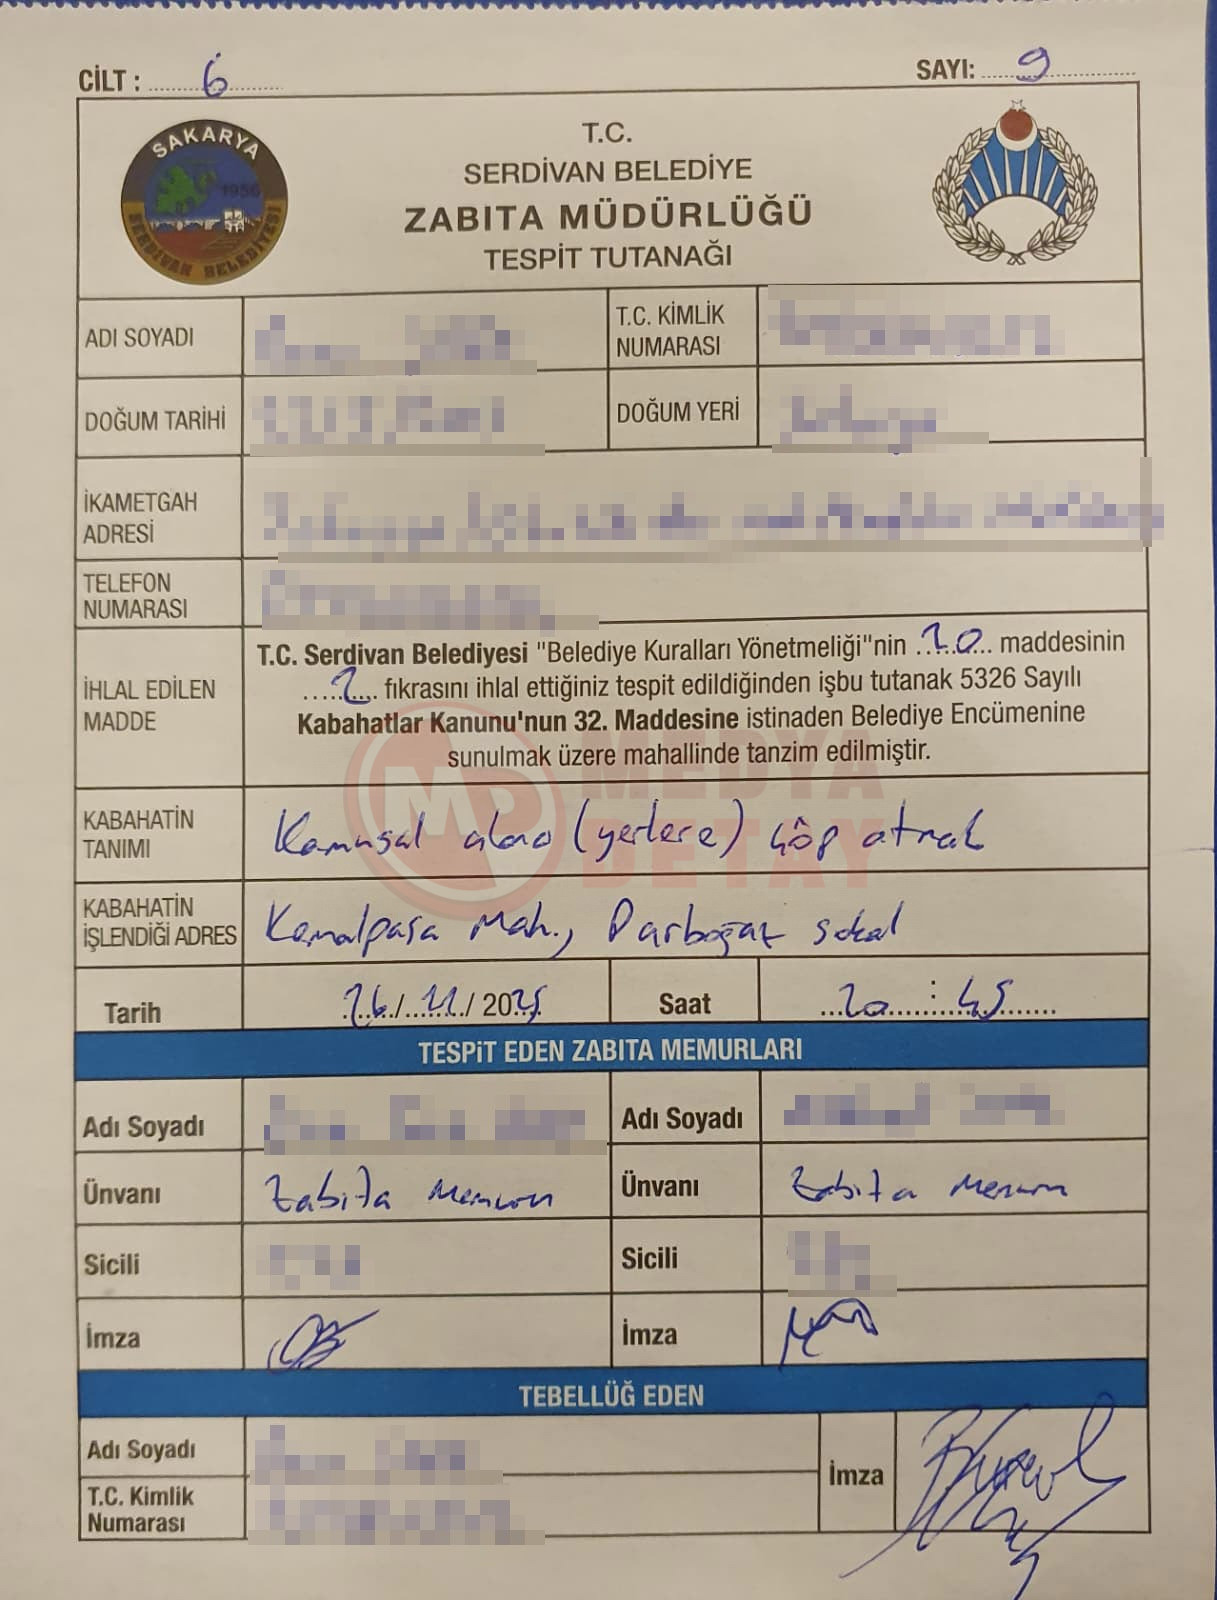 CİLT : 6
SAYI: 9
SAKARYA
1956
SERDİVAN BELEDİYESİ
T.C.
SERDİVAN BELEDİYE
ZABITA MÜDÜRLÜĞÜ
TESPİT TUTANAĞI
ADI SOYADI
T.C. KİMLİK
NUMARASI
DOĞUM TARİHİ
DOĞUM YERİ
İKAMETGAH
ADRESİ
TELEFON
NUMARASI
İHLAL EDİLEN
MADDE
T.C. Serdivan Belediyesi "Belediye Kuralları Yönetmeliği"nin 20 maddesinin
2 fıkrasını ihlal ettiğiniz tespit edildiğinden işbu tutanak 5326 Sayılı
Kabahatlar Kanunu'nun 32. Maddesine istinaden Belediye Encümenine
sunulmak üzere mahallinde tanzim edilmiştir.
MEDYA
DETAY
KABAHATİN
TANIMI
Kamusal alana (yerlere) çöp atmak
KABAHATİN
İŞLENDİĞİ ADRES
Kemalpaşa Mah., Darboğaz sokak
Tarih
26/11/2025
Saat
20:45
TESPİT EDEN ZABITA MEMURLARI
Adı Soyadı
Adı Soyadı
Ünvanı
Zabıta Memuru
Ünvanı
Zabıta Memuru
Sicili
Sicili
İmza
İmza
TEBELLÜĞ EDEN
Adı Soyadı
İmza
T.C. Kimlik
Numarası